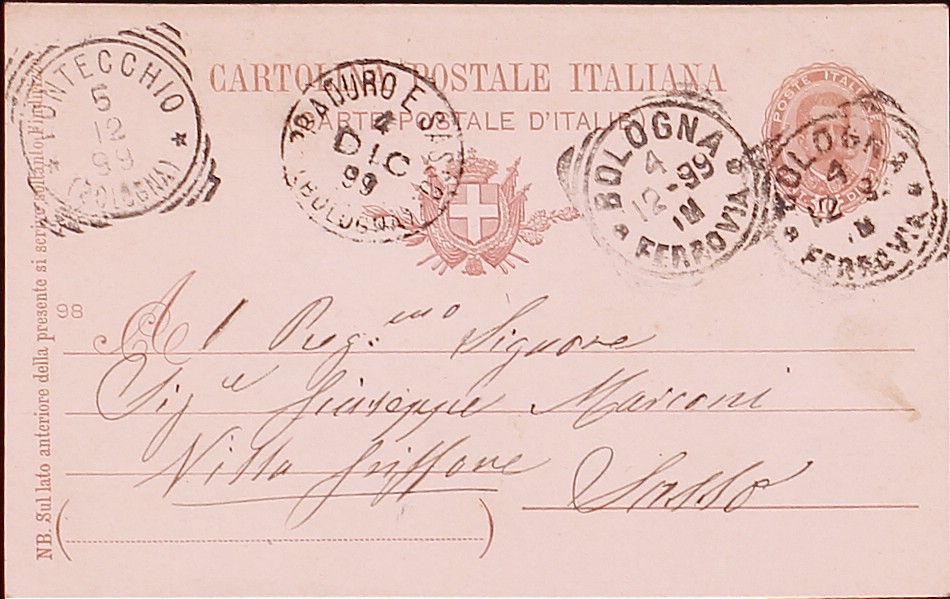 CARTOLINA POSTALE ITALIANA
CARTE POSTALE D'ITALIE
POSTE ITALIANE
PONTECCHIO
5
12
99
(BOLOGNA)
4
DIC
99
(BOLOGNA)
BOLOGNA
4
12-99
FERROVIA
BOLOGNA
4
12
FERROVIA
98
Al Preg.mo Signore
Sig.e Giuseppe Marconi
Villa Griffone
Sasso
NB. Sul lato anteriore della presente si scrive soltanto l'indirizzo